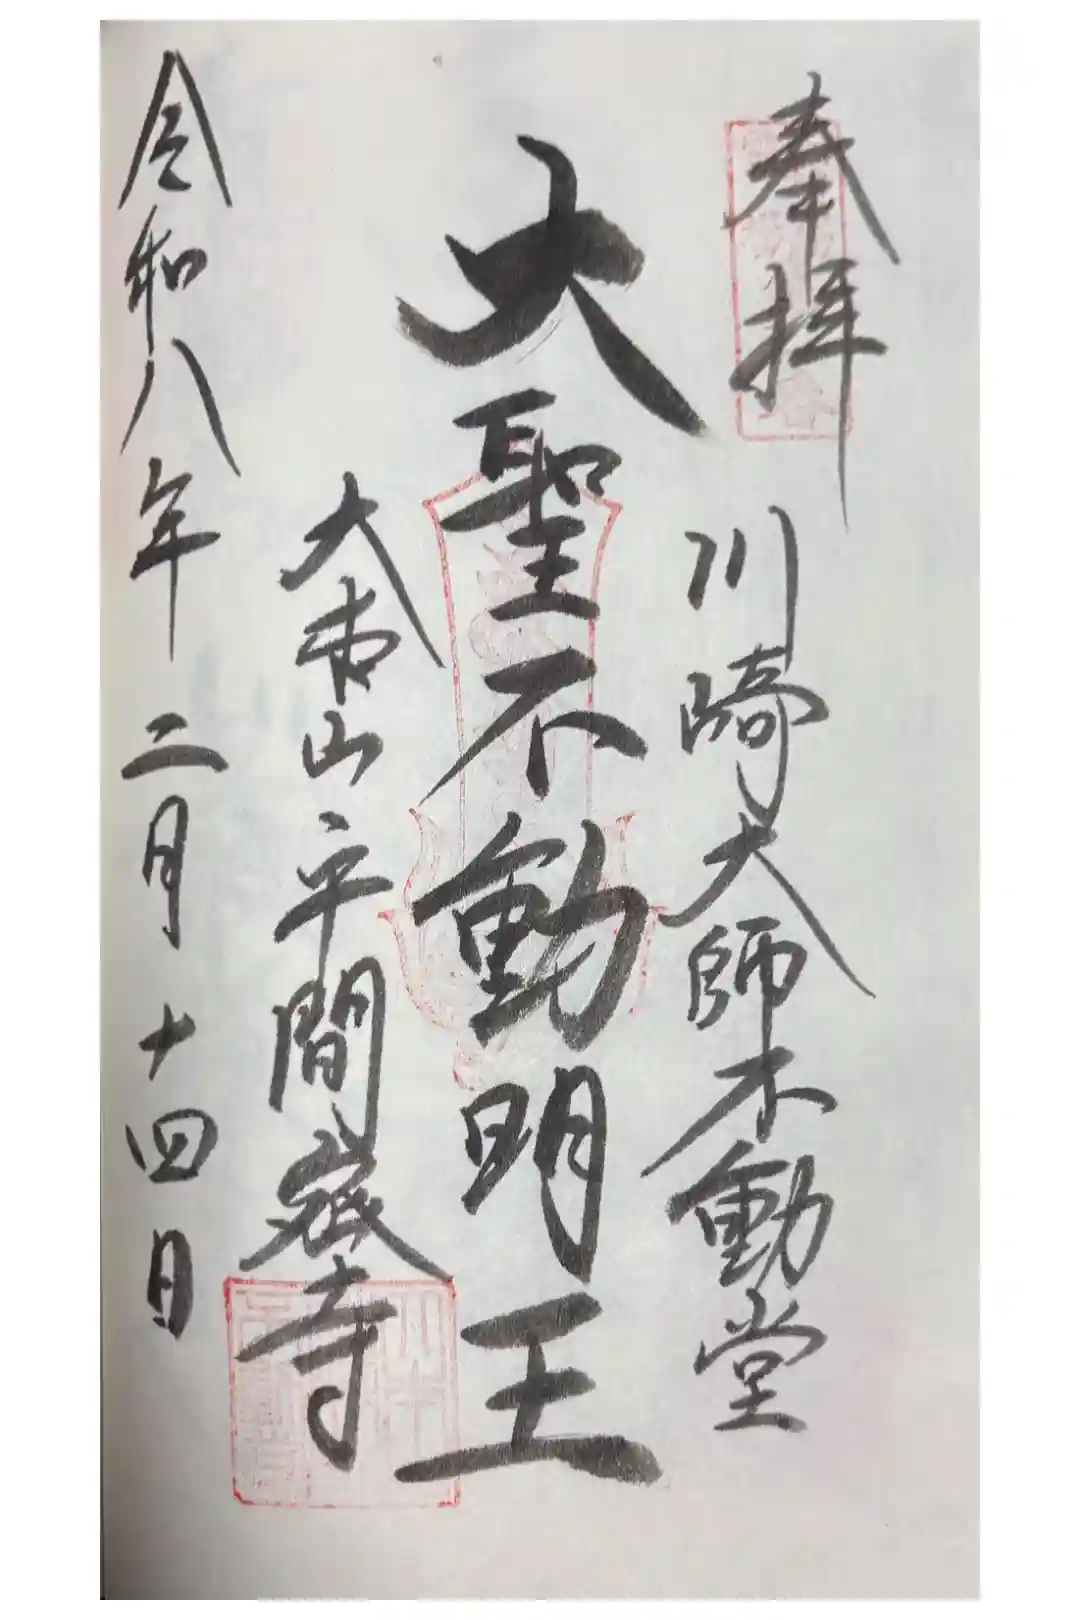 奉拝
川崎大師不動堂
大聖不動明王
大本山平間寺
令和八年二月十四日